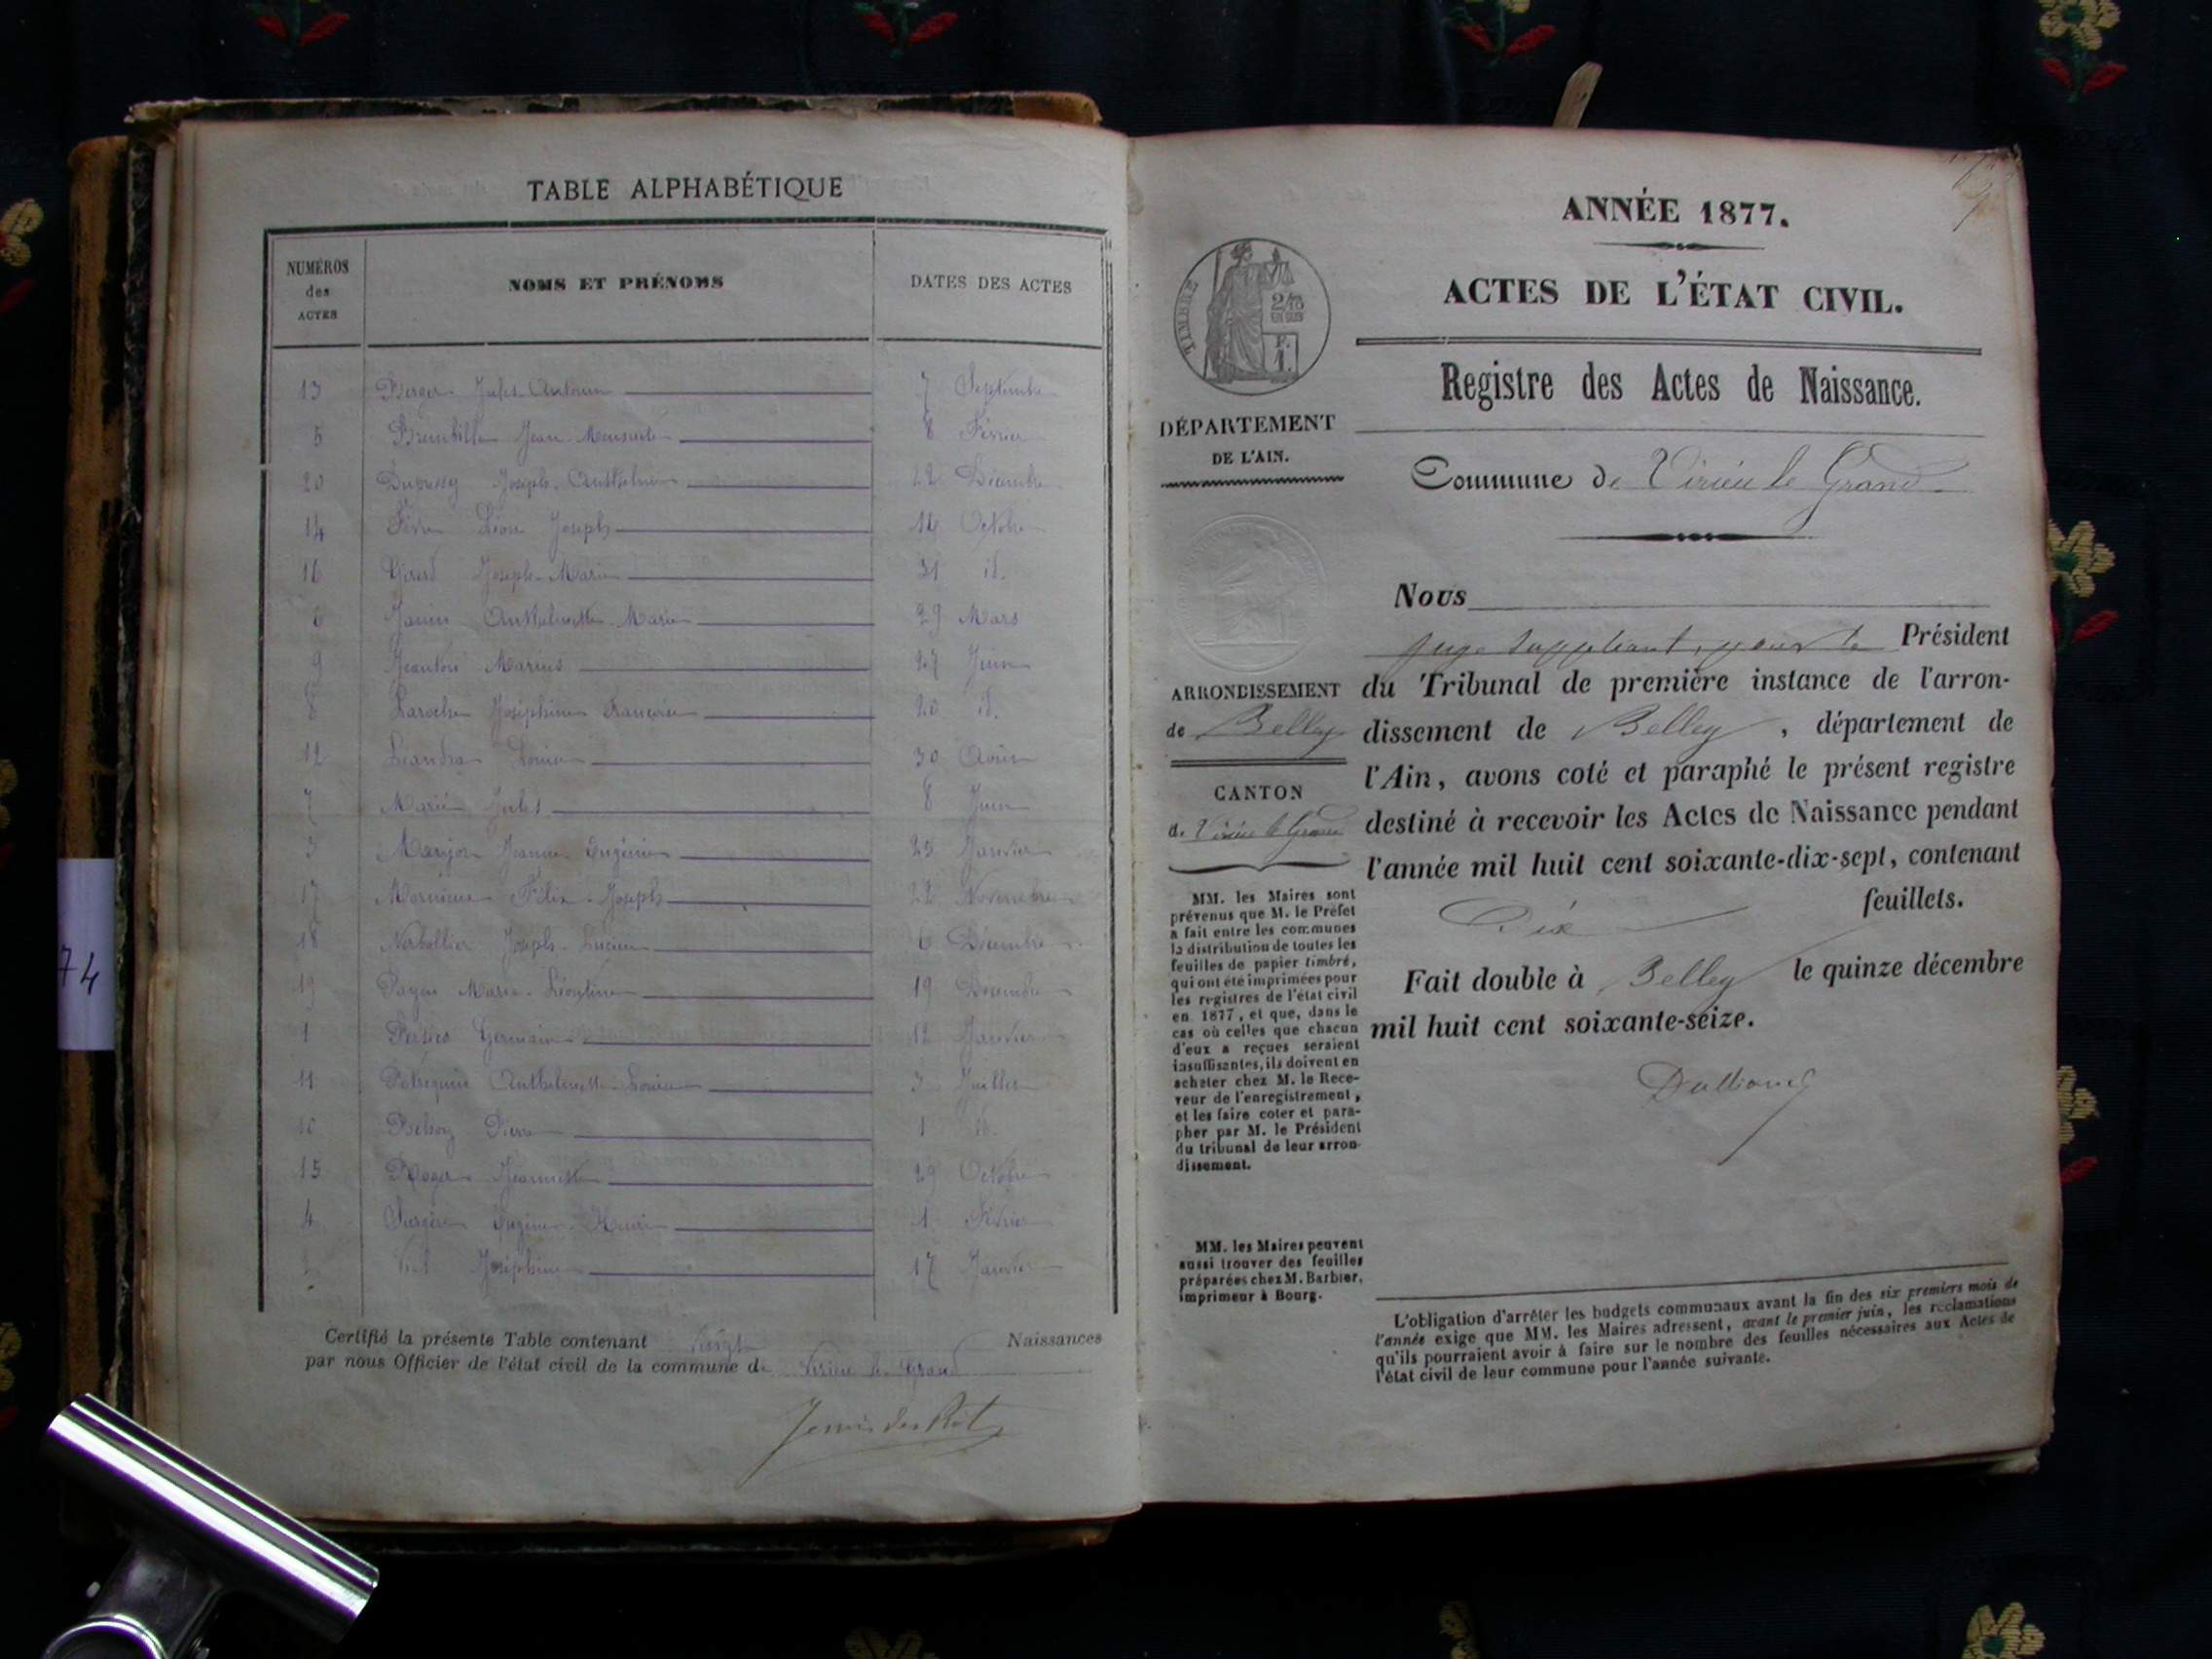 TABLE ALPHABÉTIQUE
NUMÉROS des ACTES NOMS ET PRÉNOMS DATES DES ACTES
13 Berger Jules 7 Septembre
5 Jean 8 Février
20 Joseph 22 Décembre
14 Joseph Octobre
16 Girard Joseph-Marie 31 id.
6 Janin Marie 29 Mars
9 Jeanton Marius 27 Juin
8 Laroche Joséphine Françoise 20 id.
12 Léandra Louise 30 Août
7 Marié Jules 8 Juin
3 Jeanne Eugénie 25 Janvier
17 Félix-Joseph 22 Novembre
18 Joseph-Lucien 6 Décembre
19 Marie-Léontine 19 Décembre
1 Germain 12 Janvier
11 Louise 3 Juillet
10 Pierre 1 id.
15 Roger Jeannette 29 Octobre
4 Eugène-Henri 1 Février
Joséphine 17 Janvier
Certifié la présente Table contenant Vingt Naissances
par nous Officier de l'état civil de la commune de Virieu le Grand
74
ANNÉE 1877.
ACTES DE L'ÉTAT CIVIL.
TIMBRE
2/10
EN SUS
F.
1.
Registre des Actes de Naissance.
DÉPARTEMENT
DE L'AIN.
Commune de Virieu le Grand
Nous
juge suppléant, pour le Président
ARRONDISSEMENT
de Belley
du Tribunal de première instance de l'arron-
dissement de Belley, département de
l'Ain, avons coté et paraphé le présent registre
destiné à recevoir les Actes de Naissance pendant
l'année mil huit cent soixante-dix-sept, contenant
Dix feuillets.
Fait double à Belley le quinze décembre
mil huit cent soixante-seize.
CANTON
de Virieu le Grand
MM. les Maires sont
prévenus que M. le Préfet
a fait entre les communes
la distribution de toutes les
feuilles de papier timbré,
qui ont été imprimées pour
les registres de l'état civil
en 1877, et que, dans le
cas où celles que chacun
d'eux a reçues seraient
insuffisantes, ils doivent en
acheter chez M. le Rece-
veur de l'enregistrement,
et les faire coter et para-
pher par M. le Président
du tribunal de leur arron-
dissement.
MM. les Maires peuvent
aussi trouver des feuilles
préparées chez M. Barbier,
imprimeur à Bourg.
L'obligation d'arrêter les budgets communaux avant la fin des six premiers mois de
l'année exige que MM. les Maires adressent, avant le premier juin, les réclamations
qu'ils pourraient avoir à faire sur le nombre des feuilles nécessaires aux Actes de
l'état civil de leur commune pour l'année suivante.